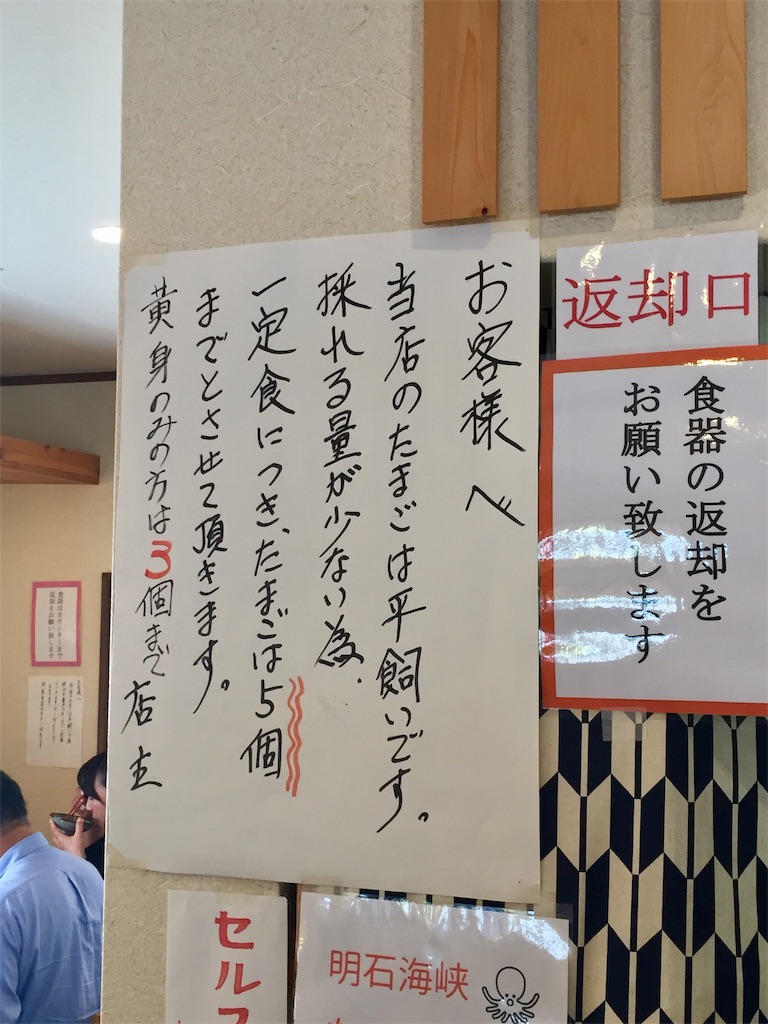 お客様へ
当店のたまごは平飼いです。
採れる量が少ない為、
一定食につき、たまごは5個
までとさせて頂きます。
黄身のみの方は3個まで 店主
返却口
食器の返却を
お願い致します
食器はカウンターまで
返却をお願い致します
セルフ
明石海峡